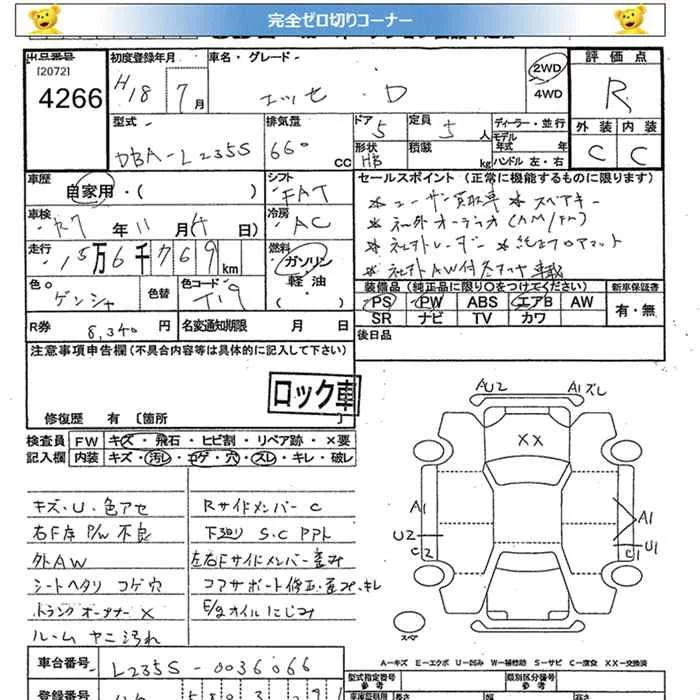 完全ゼロ切りコーナー
出品番号 初度登録年月 車名・グレード 評価点
[2072]
4266 H18 7月 エッセ・D 2WD R
4WD
型式 排気量 ドア 定員 ディーラー・並行 外装 内装
DBA-L235S 660cc 5 5人 モデル年式 年 C C
形状 HB 積載 kg ハンドル 左・右
車歴 自家用・( ) シフト FAT
セールスポイント(正常に機能するものに限ります)
車検 R7年11月(4日) 冷房 AC
*ユーザー買取車 *スペアキー
*社外オーディオ(AM/FM)
走行 15万6千769km 燃料 ガソリン
軽油
( )
*社外レーダー *純正フロアマット
*社外AW付冬タイヤ車載
色 ゲンシャ 色替 色コード T19
装備品(純正品に限り○をつけてください) 新車保証書
PS PW ABS エアB AW 有・無
SR ナビ TV カワ
R券 8,340円 名変通知期限 月 日
後日品
注意事項申告欄(不具合内容等は具体的に記入して下さい)
ロック車
修復歴 有 〔箇所 〕
検査員 FW キズ・飛石・ヒビ割・リペア跡・×要
記入欄 内装 キズ・汚レ・コゲ・穴・スレ・キレ・破レ
キズ・U・色アセ
右F席P/W不良
外AW
シートヘタリ コゲ穴
トランクオープナーX
ルームヤニ汚れ
Rサイドメンバー C
下廻り S.C PPト
左右Fサイドメンバー歪み
コアサポート修正・歪み・キレ
E/gオイルにじみ
AU2 A1ズレ
XX
A1 A1
U2 U1
C2 C1
スペ
A－キズ E－エクボ U－凹み W－補修跡 S－サビ C－腐食 XX－交換済
車台番号 L235S-0036066
型式指定番号 類別区分番号
参考 参考
登録番号